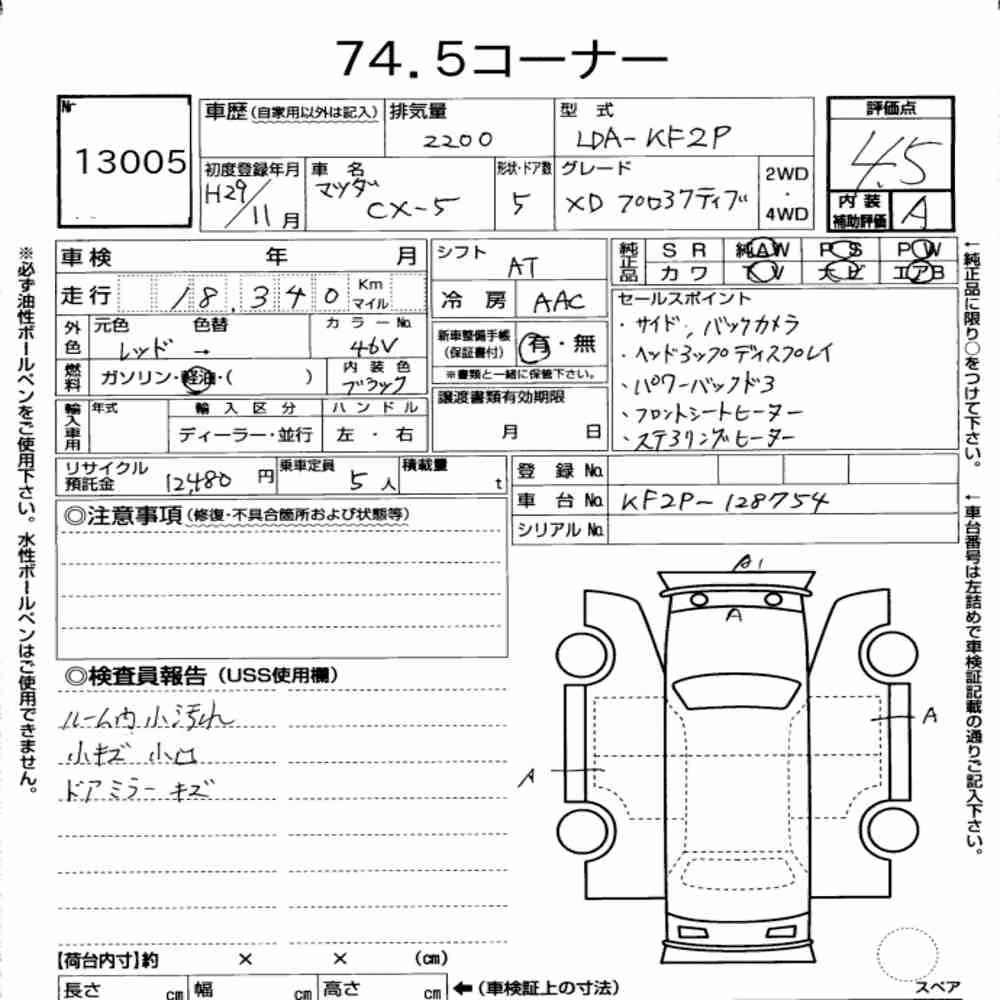 74.5コーナー
Nr
13005
車歴(自家用以外は記入)
排気量
2200
型 式
LDA-KF2P
評価点
4.5
初度登録年月
H29/11月
車 名
マツダ
CX-5
形状・ドア数
5
グレード
XD プロ3クティブ
2WD
・
4WD
内 装
補助評価
A
車検 年 月
シフト
AT
純正品
S R 純AW P S P W
カ ワ T V ナ ビ エアB
走行 18,340 Km マイル
冷 房 AAC
セールスポイント
・サイド、バックカメラ
・ヘッド3ップディスプレイ
・パワーバックド3
・フロントシートヒーター
・ステ3リングヒーター
外色
元色 色替
レッド →
カラーNo.
46V
新車整備手帳
(保証書付)
有・無
※書類と一緒に保管下さい。
燃料
ガソリン・軽油・( )
内 装 色
ブラック
譲渡書類有効期限
月 日
輸入車用
年式
輸 入 区 分
ディーラー・並行
ハ ン ド ル
左 ・ 右
リサイクル
預託金
12,480 円
乗車定員
5 人
積載量
t
登 録 No.
車 台 No. KF2P-128754
シリアル No.
◎注意事項(修復・不具合箇所および状態等)
◎検査員報告(USS使用欄)
ルーム内小汚れ
小キズ 小凹
ドアミラーキズ
A1
A
A
A
【荷台内寸】約 × × (cm)
長さ cm 幅 cm 高さ cm ←(車検証上の寸法)
スペア
※必ず油性ボールペンをご使用下さい。水性ボールペンはご使用できません。
←純正品に限り○をつけて下さい。
←車台番号は左詰めで車検証記載の通りご記入下さい。